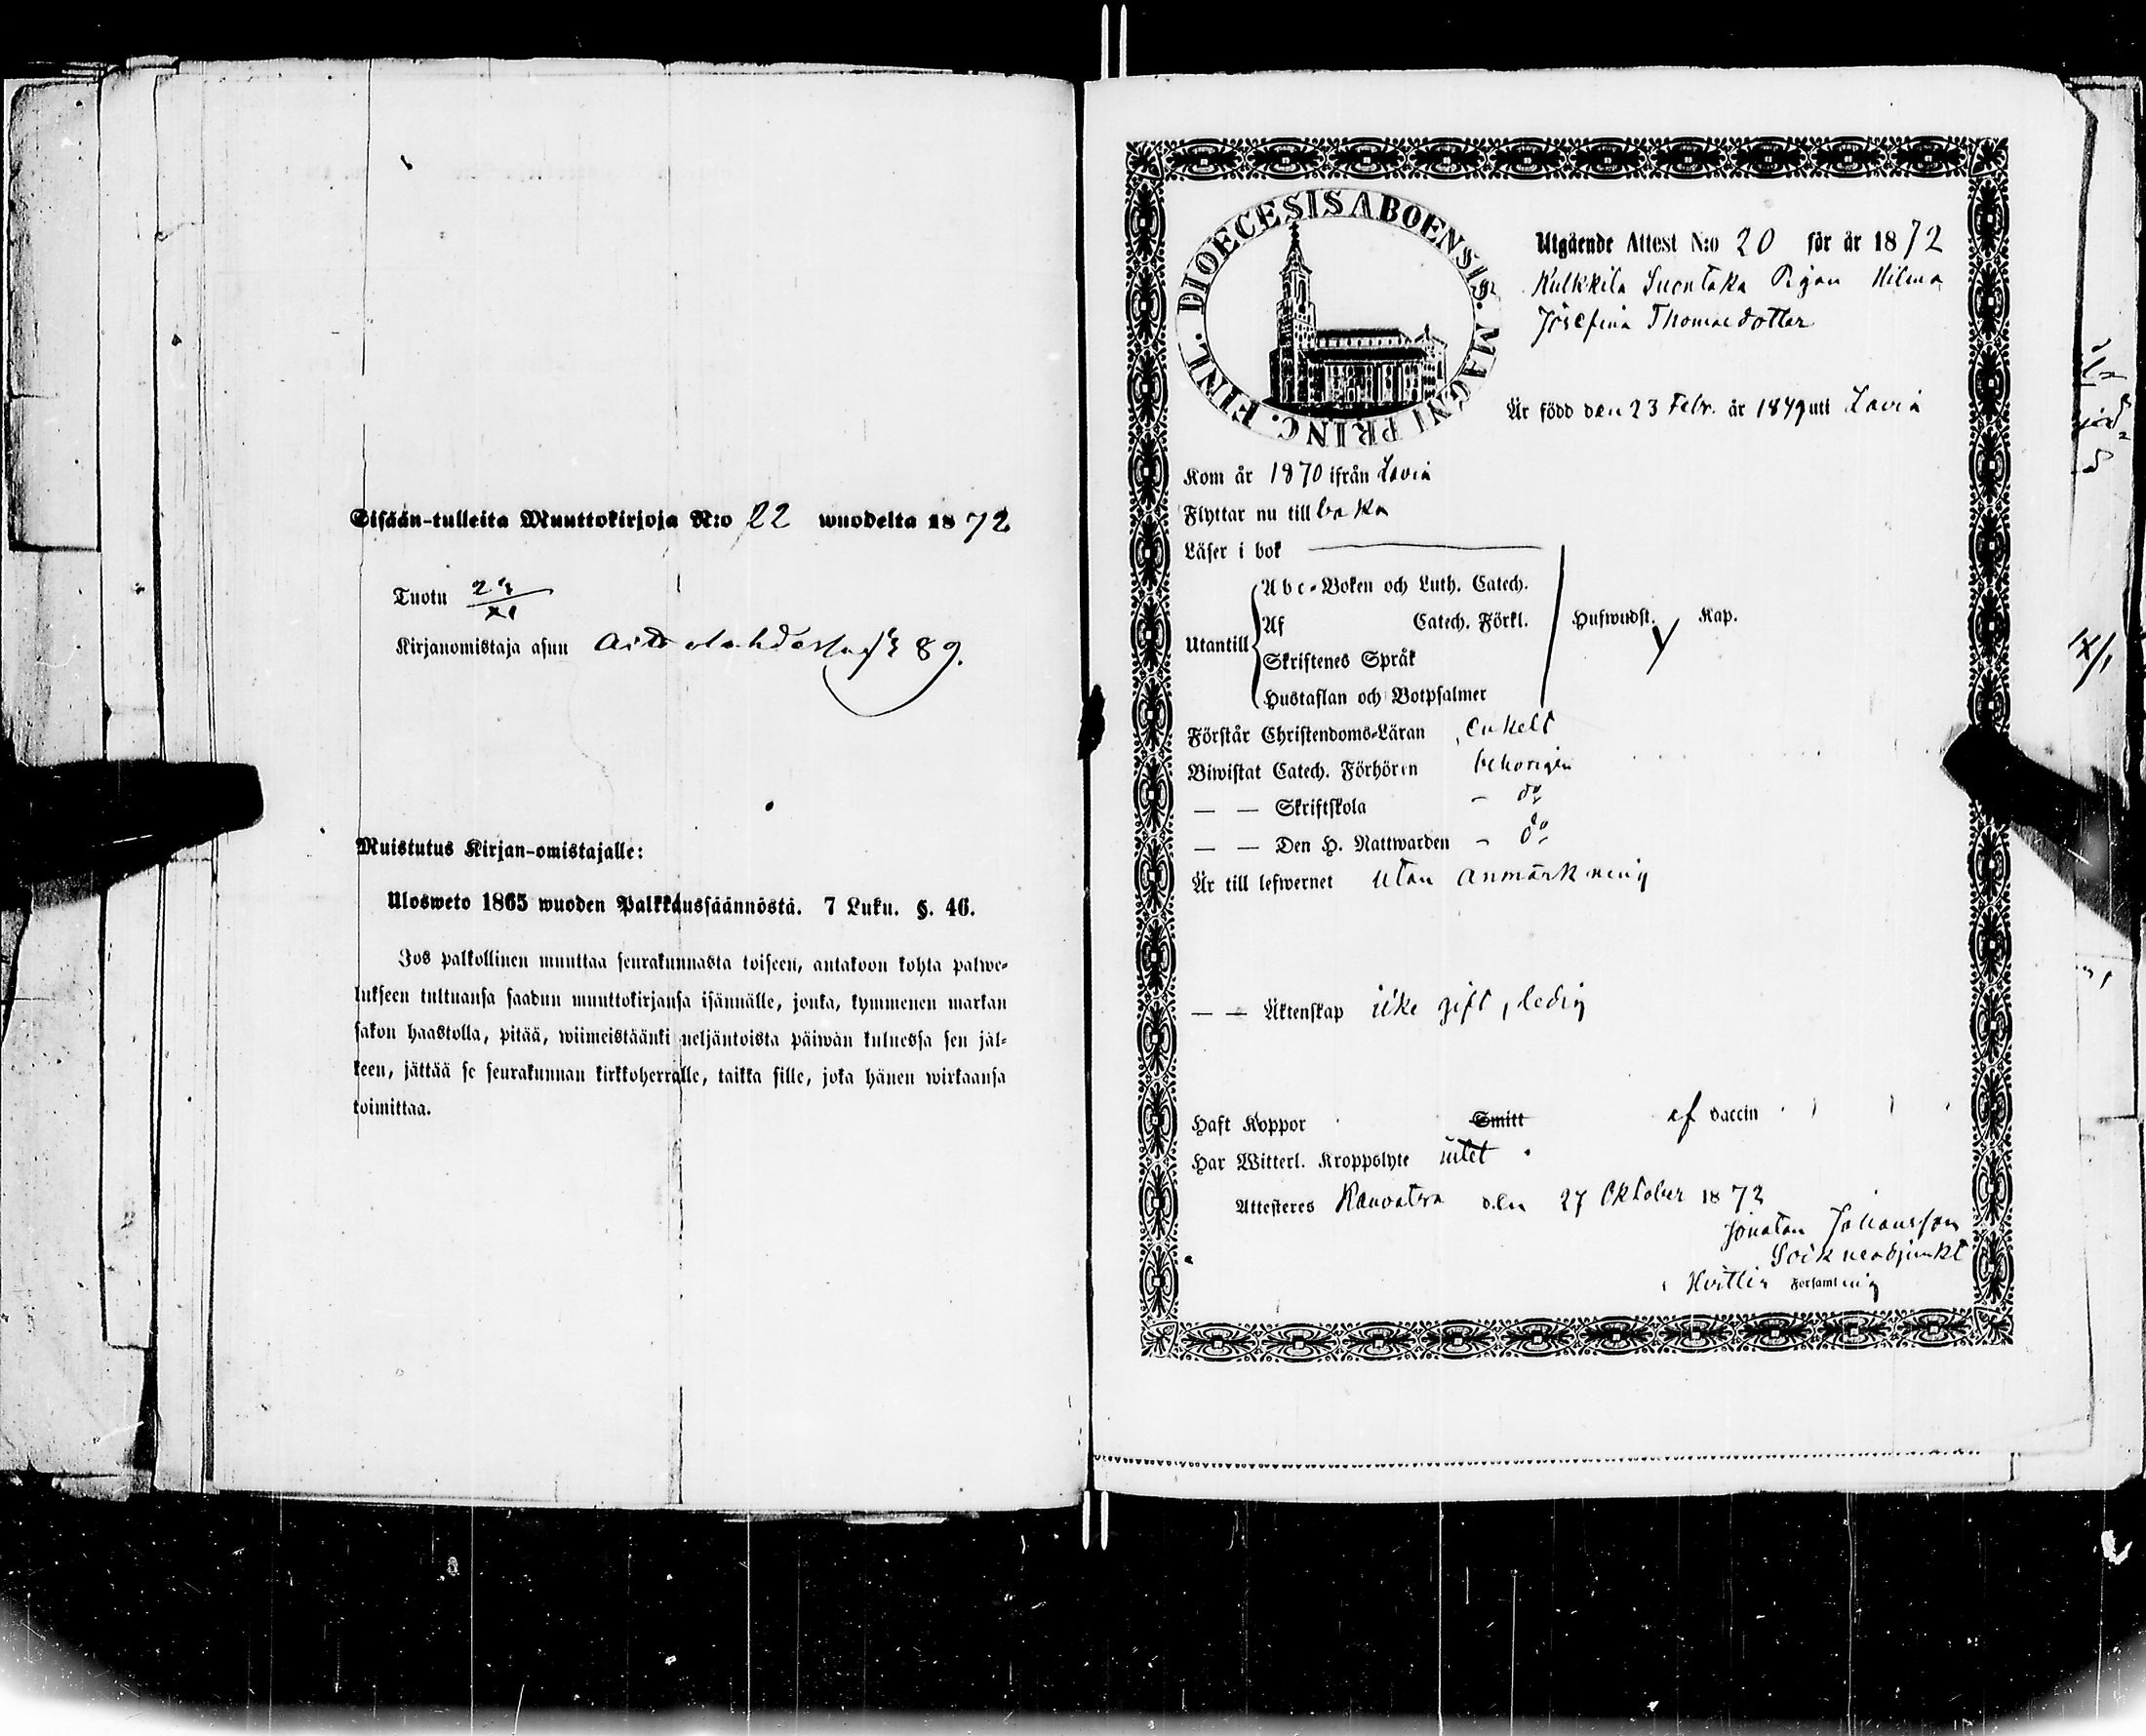 Sisään-tulleita Muuttokirjoja N:o 22 wuodelta 1872
Tuotu 24/XI
Kirjanomistaja asuu 89.
Muistutus Kirjan-omistajalle:
Ulosweto 1865 wuoden Palkkaussäännöstä. 7 Luku. §. 46.
Jos palkollinen muuttaa seurakunnasta toiseen, antakoon kohta palwe-
lukseen tultuansa saadun muuttokirjansa isännälle, jonka, kymmenen markan
sakon haastolla, pitää, wiimeistäänki neljäntoista päiwän kuluessa sen jäl-
keen, jättää se seurakunnan kirkkoherralle, taikka sille, joka hänen wirkaansa
toimittaa.
DIOECESIS ABOENSIS. MAGNI PRINC. FINL.
Utgående Attest N:o 20 för år 1872
Kulkkila Suontaka Pigan Hilma
Josefina Thomasdotter
Är född den 23 Febr. år 1849 uti Lavia
Kom år 1870 ifrån Lavia
Flyttar nu till baka
Läser i bok
Abc-Boken och Luth. Catech.
Utantill Af Catech. Förkl. Hufwudst. Kap.
Skriftenes Språk
Hustaflan och Botpsalmer
Förstår Christendoms-Läran enkelt
Biwistat Catech. Förhören behörigen
— — Skriftskola - do
— — Den H. Nattwarden - do
Är till lefwernet utan anmärkning
— — Äktenskap icke gift, ledig
Haft Koppor Smitt af vaccin
Har Witterl. Kroppslyte intet
Attesteres Kauvatsa den 27 Oktober 1872
Jonatan Johansson
Sockneadjunkt
i Hvittis Församling